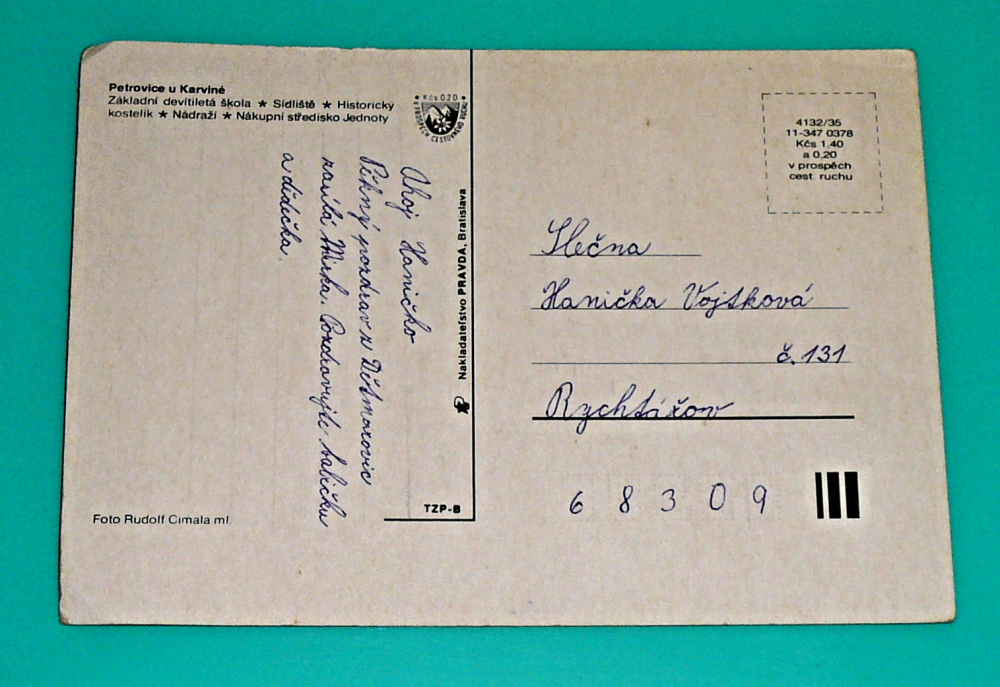 Petrovice u Karviné
Základní devítiletá škola ★ Sídliště ★ Historický
kostelík ★ Nádraží ★ Nákupní středisko Jednoty
Kčs 0,20
V PROSPĚCH CESTOVNÉHO RUCHU
Ahoj Haničko
Pěkný pozdrav z Dětmarovic
zasílá Mirka. Pozdravujte babičku
a dědečka.
Foto Rudolf Cimala ml.
Nakladateľstvo PRAVDA, Bratislava
TZP-B
4132/35
11-347 0378
Kčs 1,40
a 0,20
v prospěch
cest. ruchu
Slečna
Hanička Vojtková
č. 131
Rychtářov
6 8 3 0 9